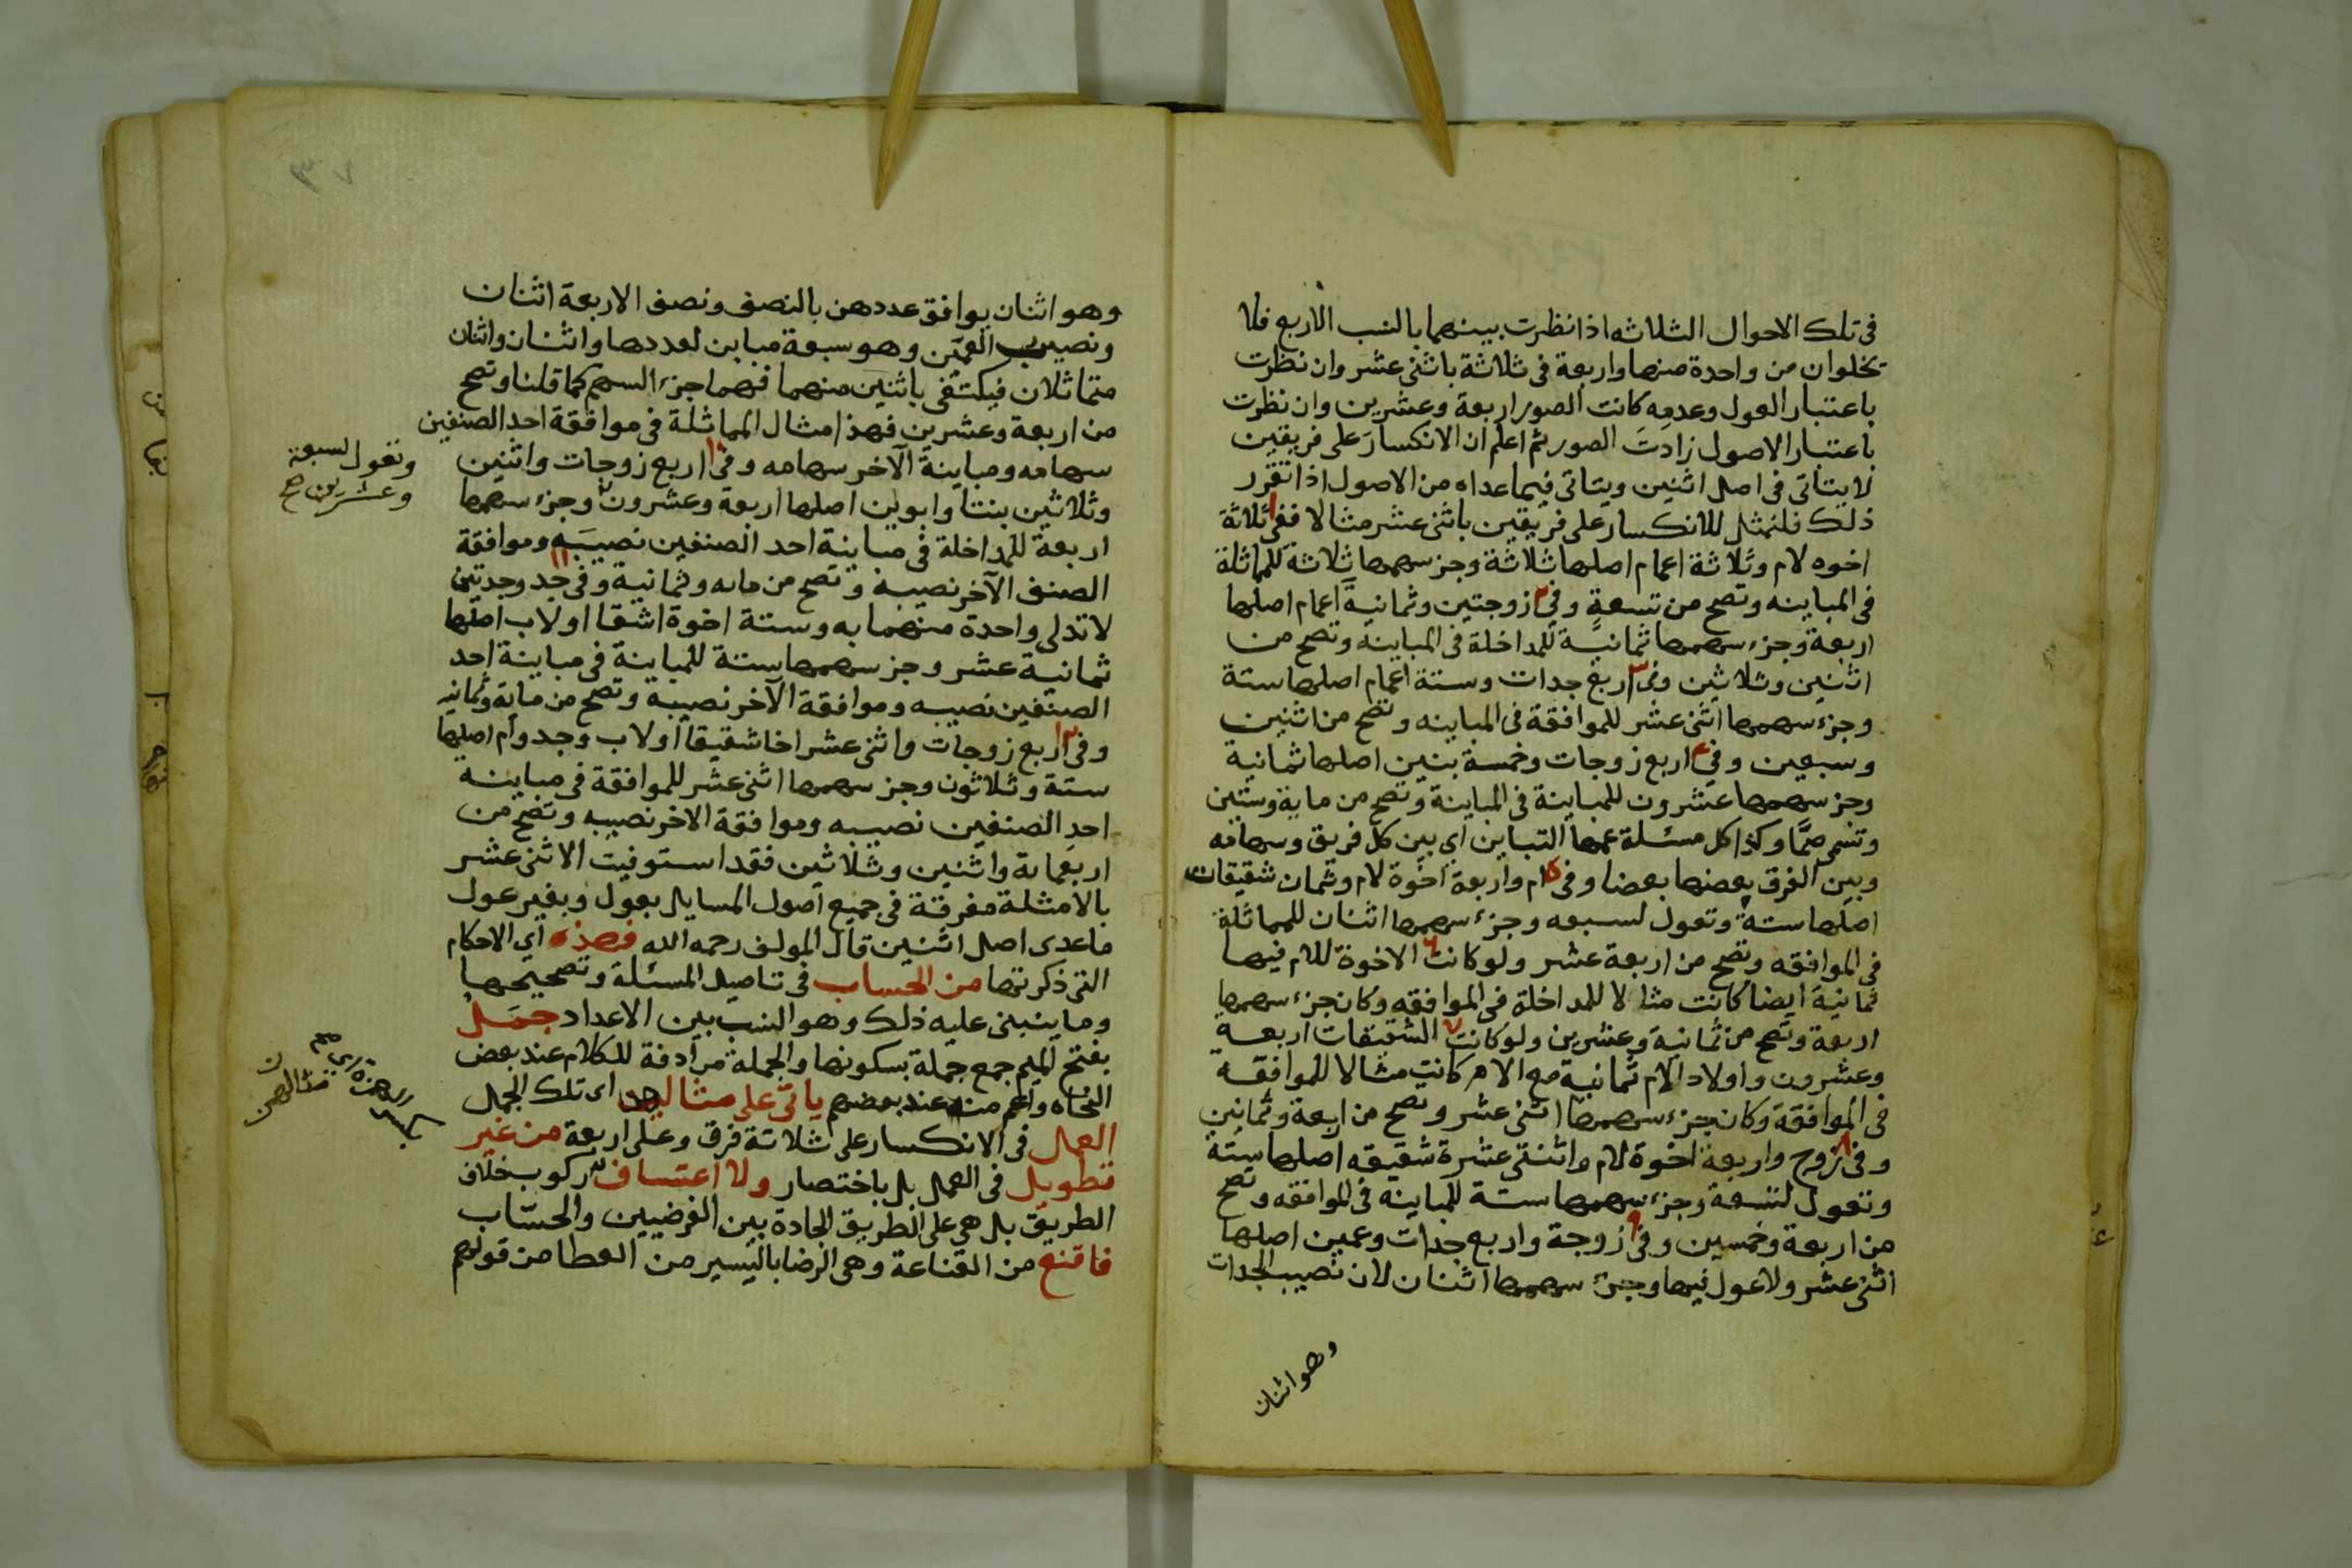 في تلك الاحوال الثلاثه اذا نظرت بينهما بالنسب الاربع فلا
يخلوان من واحدة منها واربعة في ثلاثة باثنى عشر وان نظرت
باعتبار العول وعدمه كانت الصور اربعة وعشرين وان نظرت
باعتبار الاصول زادت الصور ثم اعلم ان الانكسار على فريقين
لا يتاتى في اصل اثنين ويتاتى فيما عداه من الاصول اذا تقرر
ذلك فلنمثل للانكسار على فريقين باثنى عشر مثالا ففي ١ ثلاثة
اخوه لام وثلاثة اعمام اصلها ثلاثة وجز سهمها ثلاثة للماثلة
في المباينه وتصح من تسعة وفي ٢ زوجتين وثمانية اعمام اصلها
اربعة وجزء سهمها ثمانية للمداخلة في المباينه وتصح من
اثنين وثلاثين وفي ٣ اربع جدات وستة اعمام اصلها ستة
وجزء سهمها اثنى عشر للموافقة في المباينه وتصح من اثنين
وسبعين وفي ٤ اربع زوجات وخمسة بنين اصلها ثمانية
وجز سهمها عشرون للمباينة في المباينة وتصح من ماية وستين
وتسمى صما وكذا كل مسئلة عمها التباين اي بين كل فريق وسهامه
وبين الفرق بعضها بعضا وفي ٥ ام واربعة اخوة لام وثمان شقيقات
اصلها ستة وتعول لسبعه وجزء سهمها اثنان للمماثلة
في الموافقه وتصح من اربعة عشر ولو كانت ٦ الاخوة للام فيها
ثمانية ايضا كانت مثالا للمداخلة في الموافقه وكان جزء سهمها
اربعة وتصح من ثمانية وعشرين ولو كانت ٧ الشقيقات اربعة
وعشرون واولاد الام ثمانية مع الام كانت مثالا للموافقة
في الموافقة وكان جزء سهمها اثنى عشر وتصح من اربعة وثمانين
وفي ٨ زوج واربعة اخوة لام واثنتى عشرة شقيقه اصلها ستة
وتعول لتسعة وجزء سهمها ستة للمباينه في الموافقه وتصح
من اربعة وخمسين وفي ٩ زوجة واربع جدات وعمين اصلها
اثنى عشر ولا عول فيها وجزء سهمها اثنان لان نصيب الجدات
وهو اثنان
٣٧
وهو اثنان يوافق عددهن بالنصف ونصف الاربعة اثنان
ونصيب العمين وهو سبعة مباين لعددها واثنان واثنان
متماثلان فيكتفى باثنين منهما فهما جزء السهم كما قلنا وتصح
من اربعة وعشرين فهذا مثال المماثلة في موافقة احد الصنفين
سهامه ومباينة الآخر سهامه وفي ١٠ اربع زوجات واثنين
وثلاثين بنتا وابوين اصلها اربعة وعشرون وجزء سهمها
وتعول لسبعة
وعشرين صح
اربعة للمداخلة في مباينة احد الصنفين نصيبه وموافقة
الصنف الآخر نصيبه وتصح من مايه وثمانية وفي ١١ جد وجدتين
لا تدلى واحدة منهما به وستة اخوة اشقا او لاب اصلها
ثمانية عشر وجز سهمها ستة للمباينة في مباينة احد
الصنفين نصيبه وموافقة الآخر نصيبه وتصح من ماية وثمانيه
وفي ١٢ اربع زوجات واثنى عشر اخا شقيقا او لاب وجد وام اصلها
ستة وثلاثون وجز سهمها اثنى عشر للموافقة في مباينه
احد الصنفين نصيبه وموافقة الاخر نصيبه وتصح من
اربعماية واثنين وثلاثين فقد استوفيت الاثنى عشر
بالامثلة مفرقة في جميع اصول المسايل بعول وبغير عول
ماعدى اصل اثنين قال المولف رحمه الله فهذه اي الاحكام
التي ذكرتها من الحساب في تاصيل المسئلة وتصحيحها
وما ينبنى عليه ذلك وهو النسب بين الاعداد جمل
بفتح الميم جمع جملة بسكونها والجملة مرادفة للكلام عند بعض
النحاه واعم منه عند بعضهم ياتى على مثالهن اى تلك الجمل
مثالهن
العمل في الانكسار على ثلاثة فرق وعلى اربعة من غير
تطويل في العمل بل باختصار ولا اعتساف ركوب خلاف
الطريق بل هي على الطريق الجادة بين الفرضيين والحساب
فاقنع من القناعة وهي الرضا باليسير من العطا من قولهم